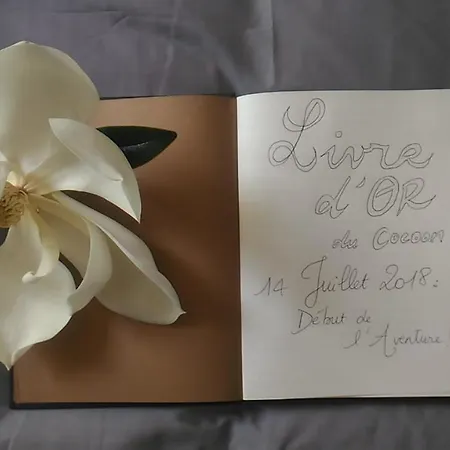 Livre
d'OR
du Cocoon
14 Juillet 2018 :
Début de
l'Aventure